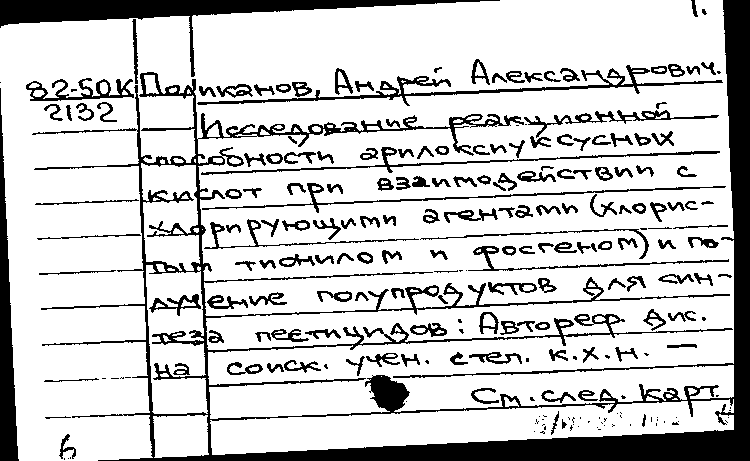 1.
82-50К Подиканов, Андрей Александрович.
2132
Исследование реакционной
способности арилоксиуксусных
кислот при взаимодействии с
хлорирующими агентами (хлорис-
тым тионилом и фосгеном) и по-
лучение полупродуктов для син-
теза пестицидов: Автореф. дис.
на соиск. учен. степ. к.х.н. —
См. след. карт.
6